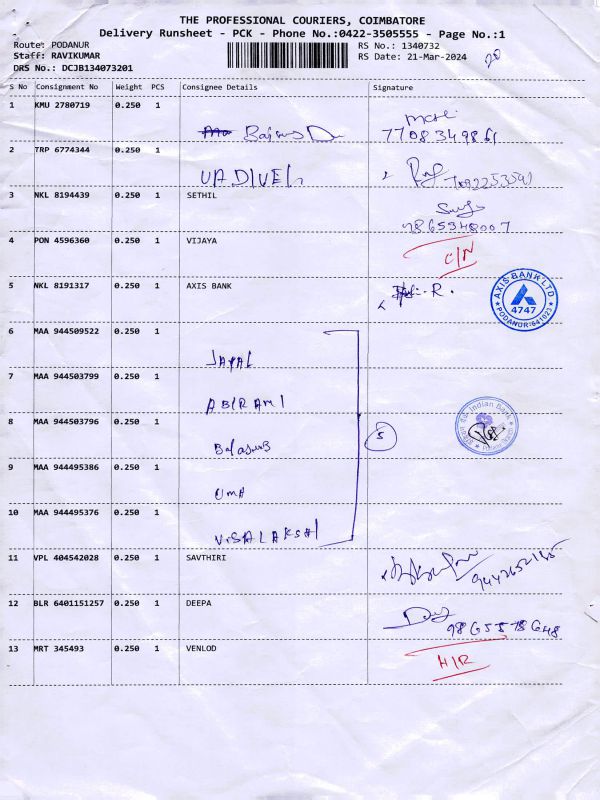 THE PROFESSIONAL COURIERS, COIMBATORE
Delivery Runsheet - PCK - Phone No.:0422-3505555 - Page No.:1
Route: PODANUR RS No.: 1340732
Staff: RAVIKUMAR RS Date: 21-Mar-2024
DRS No.: DCJB134073201
S No Consignment No Weight PCS Consignee Details Signature
1 KMU 2780719 0.250 1
7708349861
2 TRP 6774344 0.250 1
VADIVEL
3 NKL 8194439 0.250 1 SETHIL
9865348007
4 PON 4596360 0.250 1 VIJAYA
C/N
5 NKL 8191317 0.250 1 AXIS BANK
R.
AXIS BANK LTD
4747
PODANUR-641023
6 MAA 944509522 0.250 1
JAYAL
7 MAA 944503799 0.250 1
ABIRAMI
8 MAA 944503796 0.250 1
5
Indian Bank
9 MAA 944495386 0.250 1
UMA
10 MAA 944495376 0.250 1
VISALAKSAI
11 VPL 404542028 0.250 1 SAVTHIRI
9442652165
12 BLR 6401151257 0.250 1 DEEPA
9865578648
13 MRT 345493 0.250 1 VENLOD
H/R